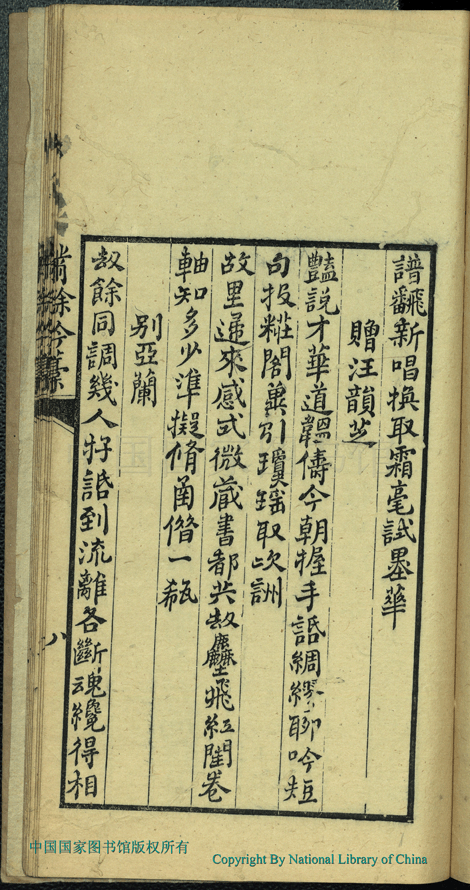 譜飜新唱換取霜毫試墨華
贈汪韻芝
豔說才華道韞儔今朝握手話綢繆聊吟短
句投糚閣冀引瓊瑤取次詶
故里遥來感式微藏書都共劫塵飛紅閨卷
軸知多少準擬脩甬借一瓻
別亞蘭
劫餘同調幾人存話到流離各斷魂纔得相
餘吟藳
八
中国国家图书馆版权所有
Copyright By National Library of China